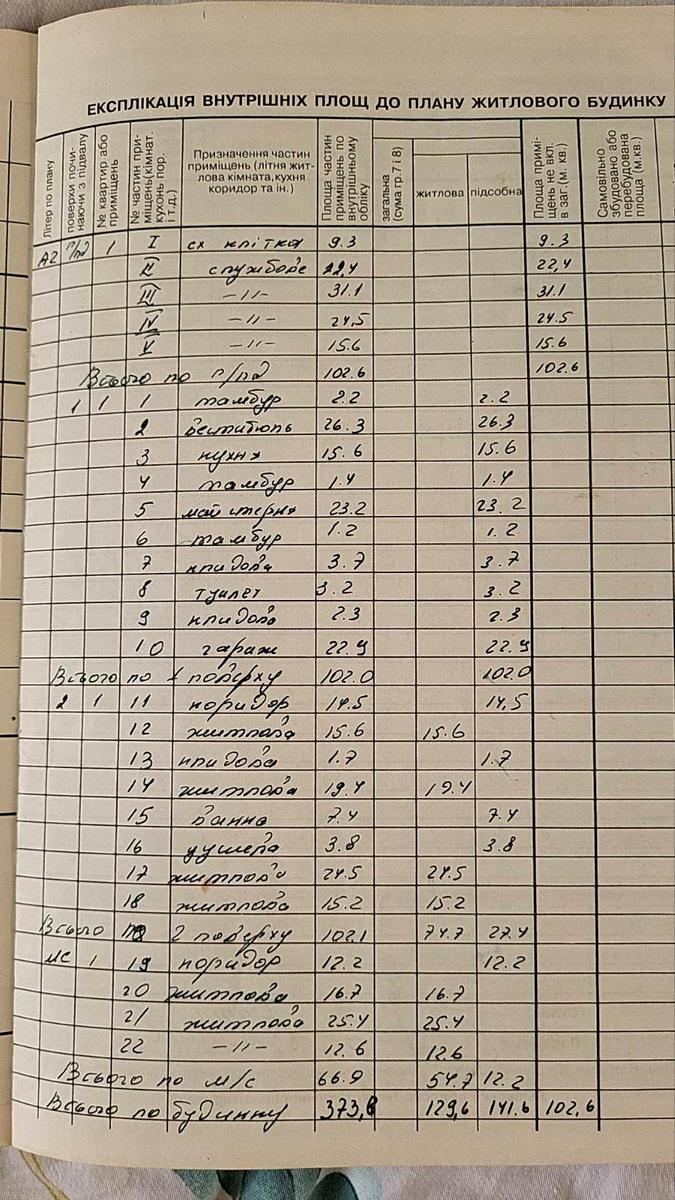 ЕКСПЛІКАЦІЯ ВНУТРІШНІХ ПЛОЩ ДО ПЛАНУ ЖИТЛОВОГО БУДИНКУ
Літер по плану
поверхи почи-
наючи з підвалу
№ квартир або
приміщень
№ частин при-
міщень(кімнат.
кухонь пор.
і т.д.)
Призначення частин
приміщень (літня жит-
лова кімната,кухня
коридор та ін.)
Площа частин
приміщень по
внутрішньому
обліку
загальна
(сума гр.7 і 8)
житлова
підсобна
Площа примі-
щень не вкл.
в заг.(м. кв.)
Самовільно
збудовано або
перебудована
площа (м.кв.)
А2 п/пд 1 I сх клітка 9.3 9.3
II службове 22,4 22,4
III –//– 31.1 31.1
IV –//– 24,5 24.5
V –//– 15.6 15.6
Всього по п/пд 102.6 102.6
1 1 1 тамбур 2.2 2.2
2 вестибюль 26.3 26.3
3 кухня 15.6 15.6
4 тамбур 1.4 1.4
5 майстерня 23.2 23.2
6 тамбур 1.2 1.2
7 кладова 3.7 3.7
8 туалет 3.2 3.2
9 кладова 2.3 2.3
10 гараж 22.9 22.9
Всього по 1 поверху 102.0 102.0
2 1 11 коридор 14.5 14,5
12 житлова 15.6 15.6
13 кладова 1.7 1.7
14 житлова 19.4 19.4
15 ванна 7.4 7.4
16 душева 3.8 3.8
17 житлова 24.5 24.5
18 житлова 15.2 15.2
Всього по 2 поверху 102,1 74.7 27.4
мс 1 19 коридор 12.2 12.2
20 житлова 16.7 16.7
21 житлова 25.4 25.4
22 –//– 12.6 12.6
Всього по м/с 66.9 54.7 12.2
Всього по будинку 373,6 129,6 141.6 102,6